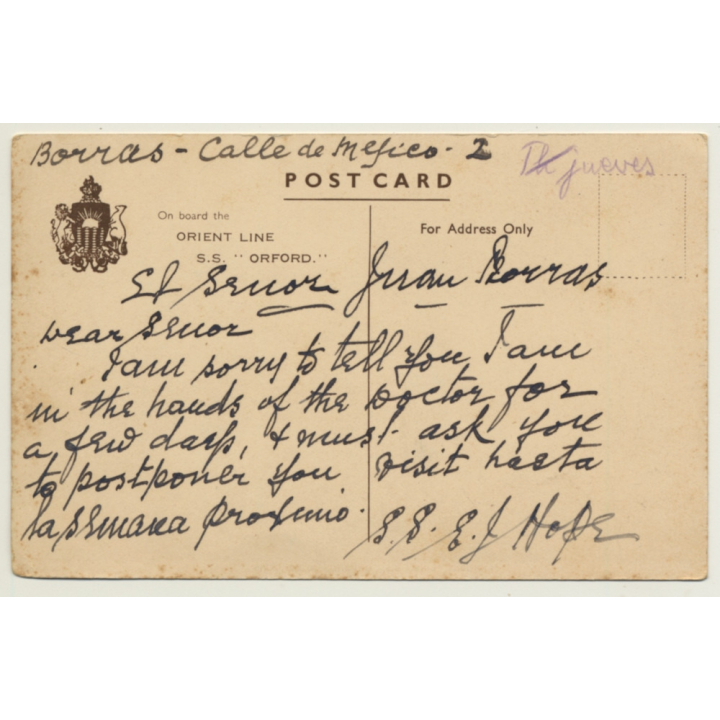 Borras - Calle de Mejico - 2
Th jueves
POST CARD
On board the
ORIENT LINE
S.S. "ORFORD."
For Address Only
El Senor Juan Borras
Dear Senor
I am sorry to tell you I am
in the hands of the Doctor for
a few days, & must ask you
to postponer you visit hasta
la semana proximo.
S.S. E. J Hope